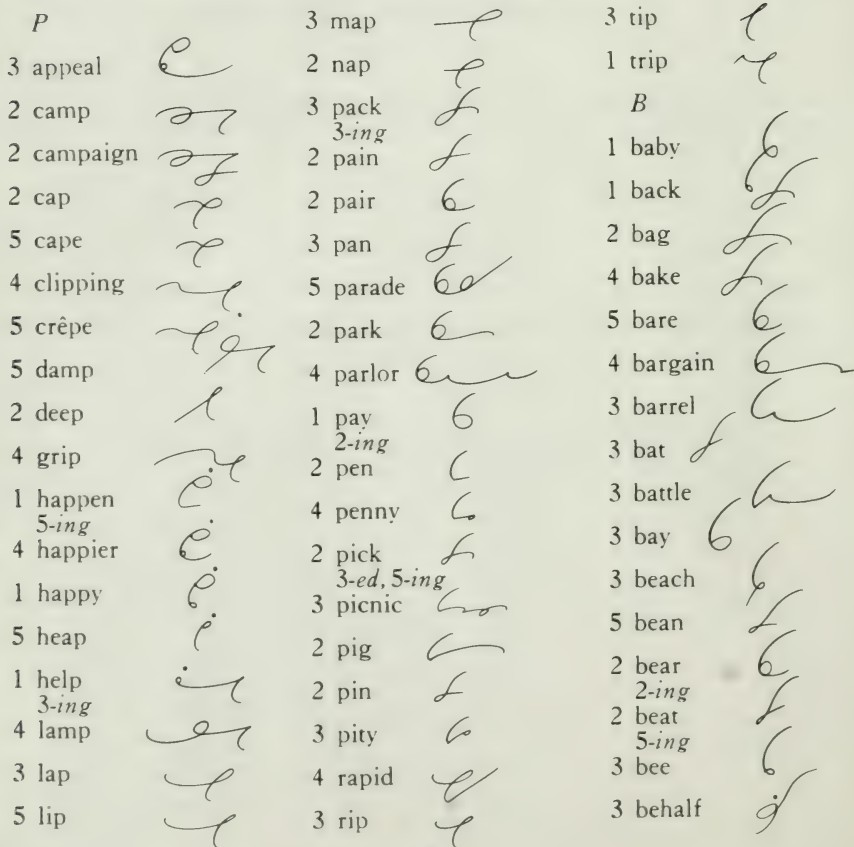 P
3 appeal
2 camp
2 campaign
2 cap
5 cape
4 clipping
5 crêpe
5 damp
2 deep
4 grip
1 happen
5-ing
4 happier
1 happy
5 heap
1 help
3-ing
4 lamp
3 lap
5 lip
3 map
2 nap
3 pack
3-ing
2 pain
2 pair
3 pan
5 parade
2 park
4 parlor
1 pay
2-ing
2 pen
4 penny
2 pick
3-ed, 5-ing
3 picnic
2 pig
2 pin
3 pity
4 rapid
3 rip
3 tip
1 trip
B
1 baby
1 back
2 bag
4 bake
5 bare
4 bargain
3 barrel
3 bat
3 battle
3 bay
3 beach
5 bean
2 bear
2-ing
2 beat
5-ing
3 bee
3 behalf